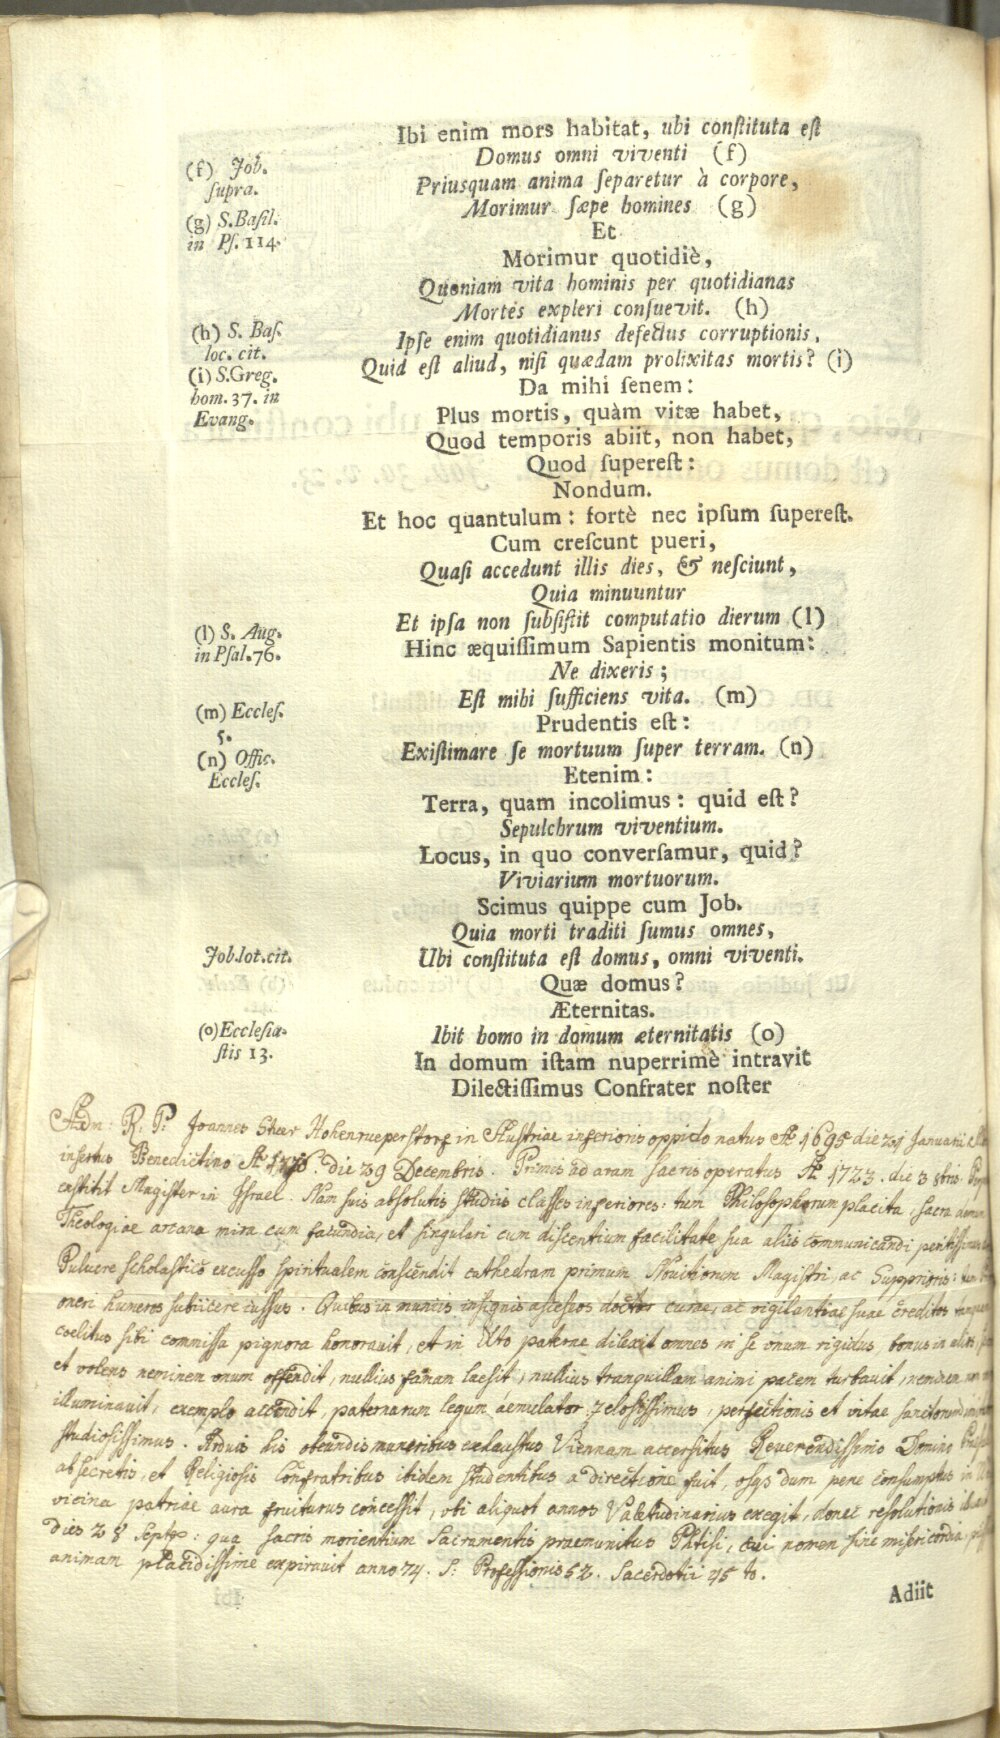 Ibi enim mors habitat, ubi conſtituta eſt
Domus omni viventi (f)
(f) Job.
ſupra.
Priusquam anima ſeparetur à corpore,
Morimur ſæpe homines (g)
(g) S. Baſil.
in Pſ. 114.
Et
Morimur quotidiè,
Quoniam vita hominis per quotidianas
Mortes expleri conſuevit. (h)
(h) S. Baſ.
loc. cit.
Ipſe enim quotidianus defectus corruptionis,
Quid eſt aliud, niſi quædam prolixitas mortis? (i)
(i) S. Greg.
hom. 37. in
Evang.
Da mihi ſenem:
Plus mortis, quàm vitæ habet,
Quod temporis abiit, non habet,
Quod ſupereſt:
Nondum.
Et hoc quantulum: fortè nec ipſum ſupereſt.
Cum creſcunt pueri,
Quaſi accedunt illis dies, & neſciunt,
Quia minuuntur
Et ipſa non ſubſiſtit computatio dierum (l)
(l) S. Aug.
in Pſal. 76.
Hinc æquiſſimum Sapientis monitum:
Ne dixeris;
Eſt mihi ſufficiens vita. (m)
(m) Eccleſ.
5.
Prudentis eſt:
Exiſtimare ſe mortuum ſuper terram. (n)
(n) Offic.
Eccleſ.
Etenim:
Terra, quam incolimus: quid eſt?
Sepulchrum viventium.
Locus, in quo converſamur, quid?
Viviarium mortuorum.
Scimus quippe cum Job.
Quia morti traditi ſumus omnes,
Job. lot. cit.
Ubi conſtituta eſt domus, omni viventi.
Quæ domus?
Æternitas.
(o) Eccleſia-
ſtis 13.
Ibit homo in domum æternitatis (o)
In domum iſtam nuperrimè intravit
Dilectiſſimus Confrater noſter
Adm: R: P: Joannes Hohenrueperstorf in Austriae inferioris oppido natus Aº 1695 die 21 Januarii
insertus Benedictino die 29 Decembris. Primis ad aram sacris operatus Aº 1723. die 3
extitit Magister in Israel. Nam suis absolutis studiis classes inferiores: tum Philosophorum placita, sacra
Theologiae arcana mira cum facundia, et singulari cum discentium facilitate sua aliis communicandi
Pulvere scholastico excusso spiritualem conscendit cathedram primum Novitiorum Magistri, ac Supprioris: tum
oneri humeros subiicere iussus. Quibus in muniis insignis asceseos doctor curae, ac vigilantiae suae creditos
coelitus sibi commissa pignora honoravit, et in Xto paterne dilexit omnes in se unum rigidus, bonus in alios,
et volens neminem unum offendit, nullius famam laesit, nullius tranquillam animi pacem turbavit, neminem non
illuminavit, exemplo accendit, paternarum legum aemulator zelosissimus, perfectionis et vitae
studiosissimus. Arduis his obeundis muneribus exhaustus Viennam accersitus Reverendissimo Domino
a secretis, et Religiosis Confratribus ibidem studentibus a directione fuit, usqs dum pene consumptus in
vicina patriae aura fruiturus concessit, ubi aliquot annos Valetudinarius exegit, donec resolutionis
dies 28 Septo: qua sacris morientium Sacramentis praemunitus Phtisi, cui nomen sine misericordia,
animam placidissime expiravit anno 74. S: Professionis 52. Sacerdotii 45to.
Adiit